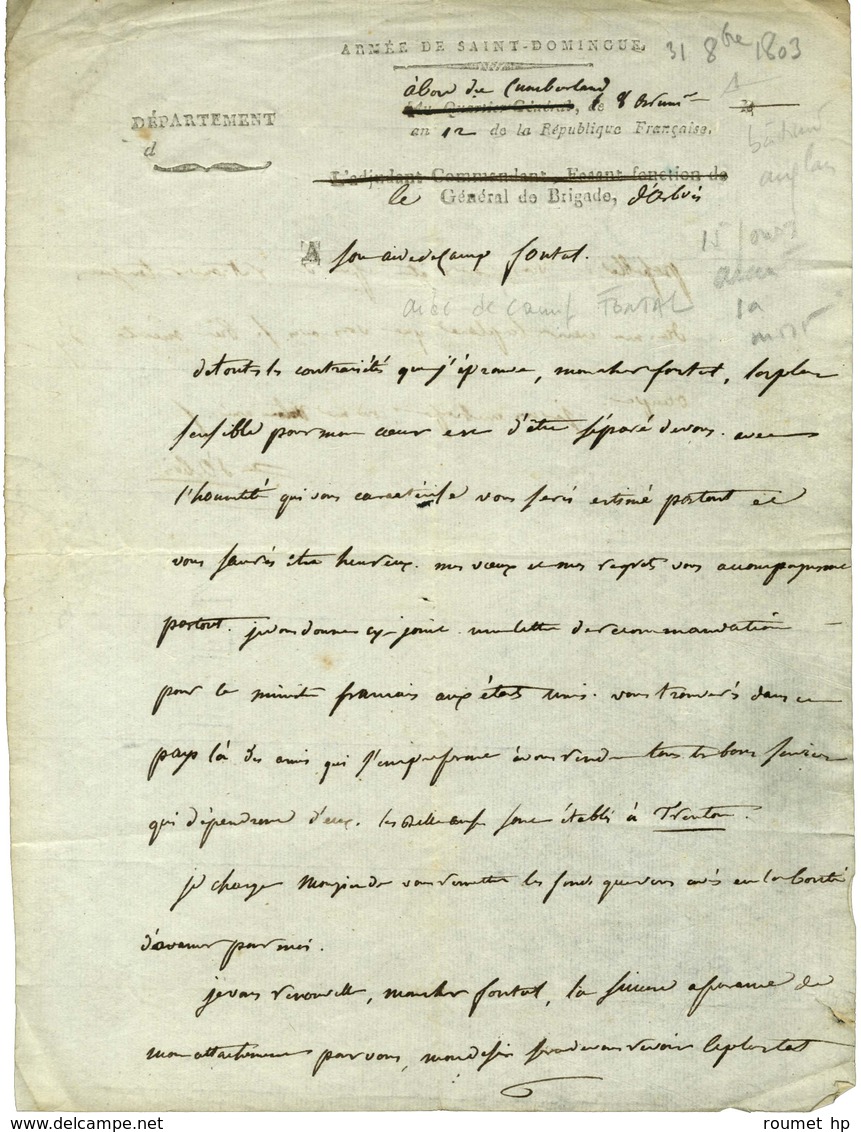 ARMÉE DE SAINT-DOMINGUE,
31 8bre 1803
à bord du Cumberland
Au Quartier-Général, le 8 brum.re
DÉPARTEMENT
d
an 12 de la République Française.
bâtiment
anglais
L'adjudant Commandant, Fesant fonction de
le Général de Brigade, d'arbois
15 jours
avant
sa
mort
A son aide de Camp fontal.
aide de camp FONTAL
de touts les contrariétés que j'éprouve, mon cher fontal, la plus
sensible pour mon cœur est d'être séparé de vous. avec
l'honnêté qui vous caractérise vous serés estimé partout et
vous saurés être heureux. mes vœux et mes regrets vous accompagnent
partout. je vous donne cy-joint une lettre de recommandation
pour le ministre français aux états unis. vous trouverés dans ce
pays là des amis qui s'empresseront à vous rendre tous les bons services
qui dépendront d'eux. les sont établis à Trenton.
je charge de vous remettre les fonds que vous avés eu la bonté
d'avancer pour moi.
je vous renouvelle, mon cher fontal, la sincère assurance de
mon attachement pour vous, mon désir sera de vous revoir le plus tot
roumet hp